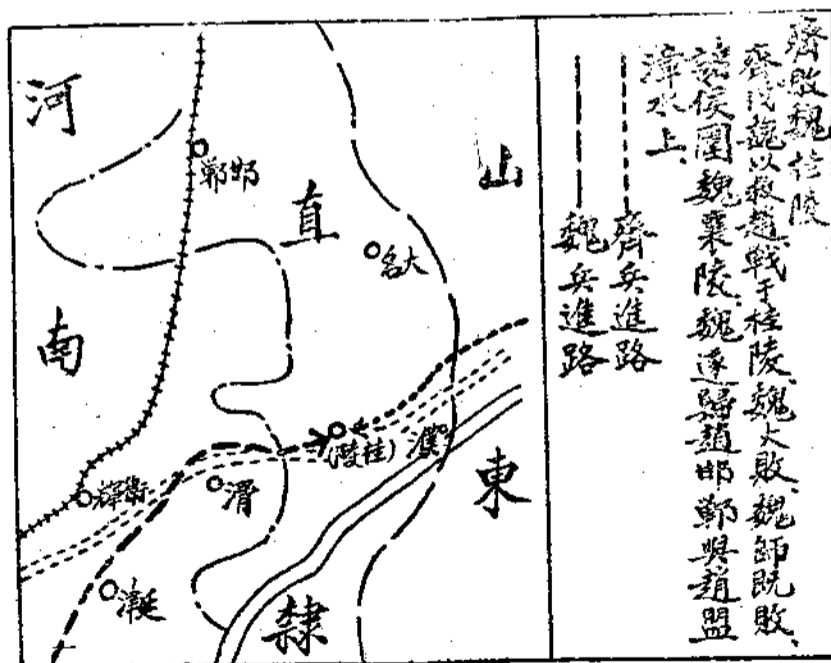 齊敗魏桂陵
齊伐魏以救趙、戰于桂陵、魏大敗、魏師既敗、
諸侯圍魏襄陵、魏遂歸趙邯鄲與趙盟
漳水上、
齊兵進路
魏兵進路
山
東
直
隸
河
南
邯鄲
大名
濮
(桂陵)
滑
衛輝
延津